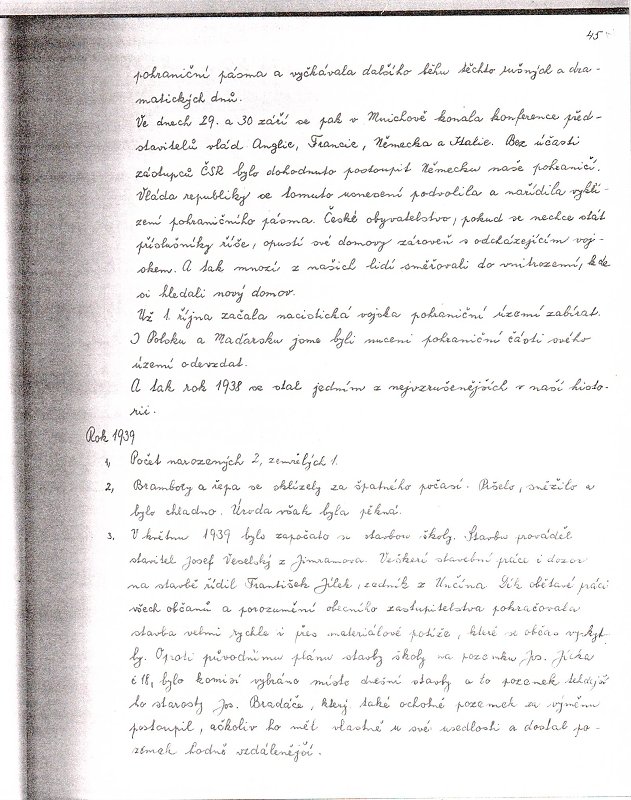 45
pohraniční pásma a vyčkávala dalšího běhu těchto rušných a dra-
matických dnů.
Ve dnech 29. a 30 září se pak v Mnichově konala konference před-
stavitelů vlád Anglie, Francie, Německa a Itálie. Bez účasti
zástupců ČSR bylo dohodnuto postoupit Německu naše pohraničí.
Vláda republiky se tomuto usnesení podvolila a nařídila vykli-
zení pohraničního pásma. České obyvatelstvo, pokud se nechce stát
příslušníky říše, opustí své domovy zároveň s odcházejícím voj-
skem. A tak mnozí z našich lidí směřovali do vnitrozemí, kde
si hledali nový domov.
Už 1. října začala nacistická vojska pohraniční území zabírat.
I Polsku a Maďarsku jsme byli nuceni pohraniční části svého
území odevzdat.
A tak rok 1938 se stal jedním z nejvzrušenějších v naší histo-
rii.
Rok 1939
1, Počet narozených 2, zemřelých 1.
2, Brambory a řepa se sklízely za špatného počasí. Pršelo, sněžilo a
bylo chladno. Úroda však byla pěkná.
3. V květnu 1939 bylo započato se stavbou školy. Stavbu prováděl
stavitel Josef Veselský z Jimramova. Veškeré stavební práce i dozor
na stavbě řídil František Jílek, zedník z Unčína. Dík obětavé práci
všech občanů a porozumění obecního zastupitelstva pokračovala
stavba velmi rychle i přes materiálové potíže, které se občas vyskyt
ly. Oproti původnímu plánu stavby školy na pozemku Jos.
č 18, bylo komisí vybráno místo dnešní stavby a to pozemek tehdejší
ho starosty Jos. Bradáče, který také ochotně pozemek za výměnu
postoupil, ačkoliv ho měl vlastně u své usedlosti a dostal po-
zemek hodně vzdálenější.